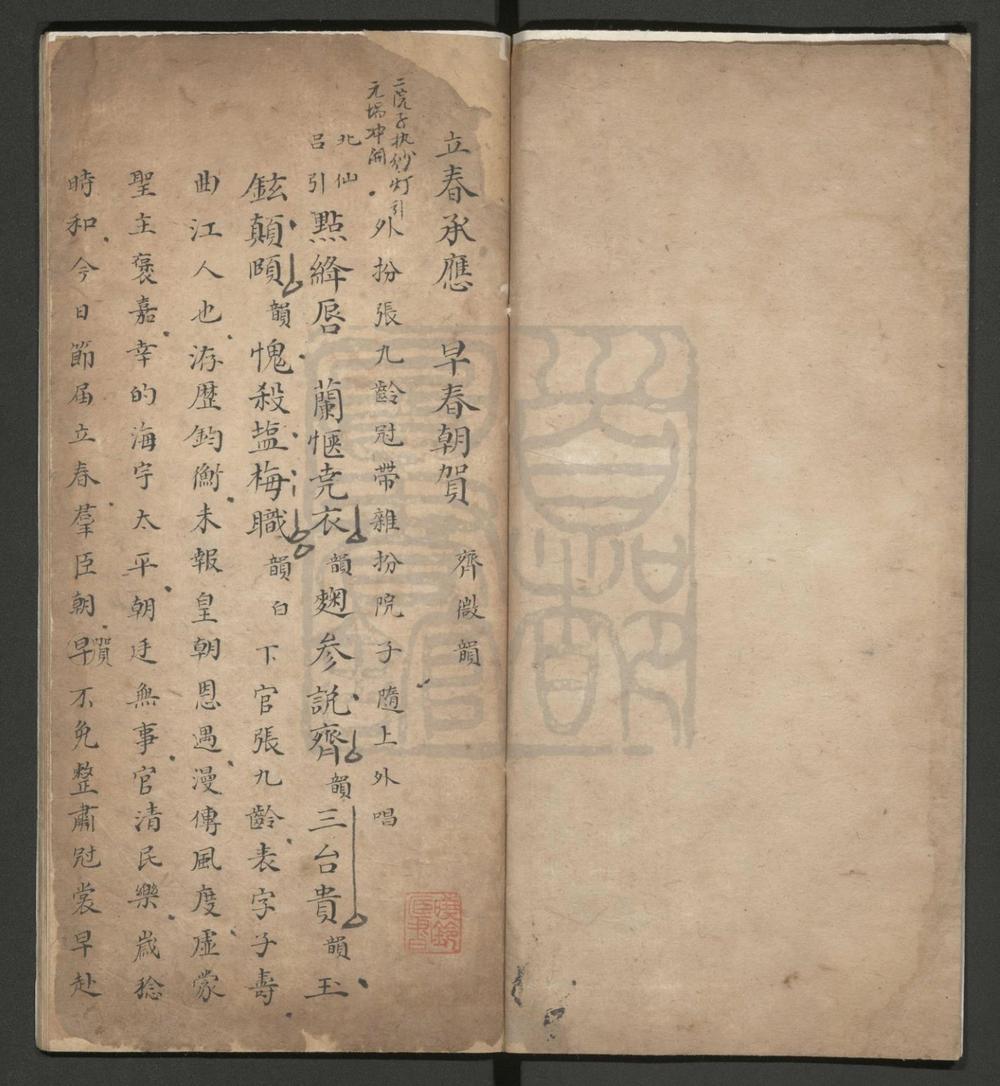 立春承應 早春朝賀 齊微韻
二院子执纱灯引
元場冲開
外扮張九齡冠帶雜扮院子隨上外唱
北仙
呂引
點絳唇 蘭惬尭衣韻麹参説齊韻三台貴韻玉
鉉顛頤韻愧殺盐梅職韻白下官張九齡表字子壽
曲江人也洊歷鈞衡未報皇朝恩遇漫傳風度虛蒙
聖主褒嘉幸的海宇太平朝廷無事官清民樂嵗稔
時和今日節届立春羣臣朝賀早不免整肅冠裳早赴